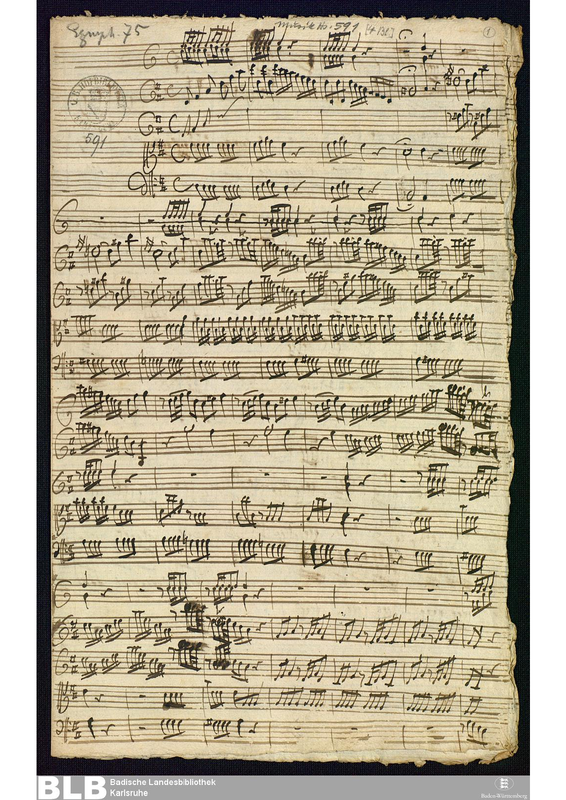 Symph. 75
Musik Hs. 591
1
591
BLB Badische Landesbibliothek
Karlsruhe
Baden-Württemberg